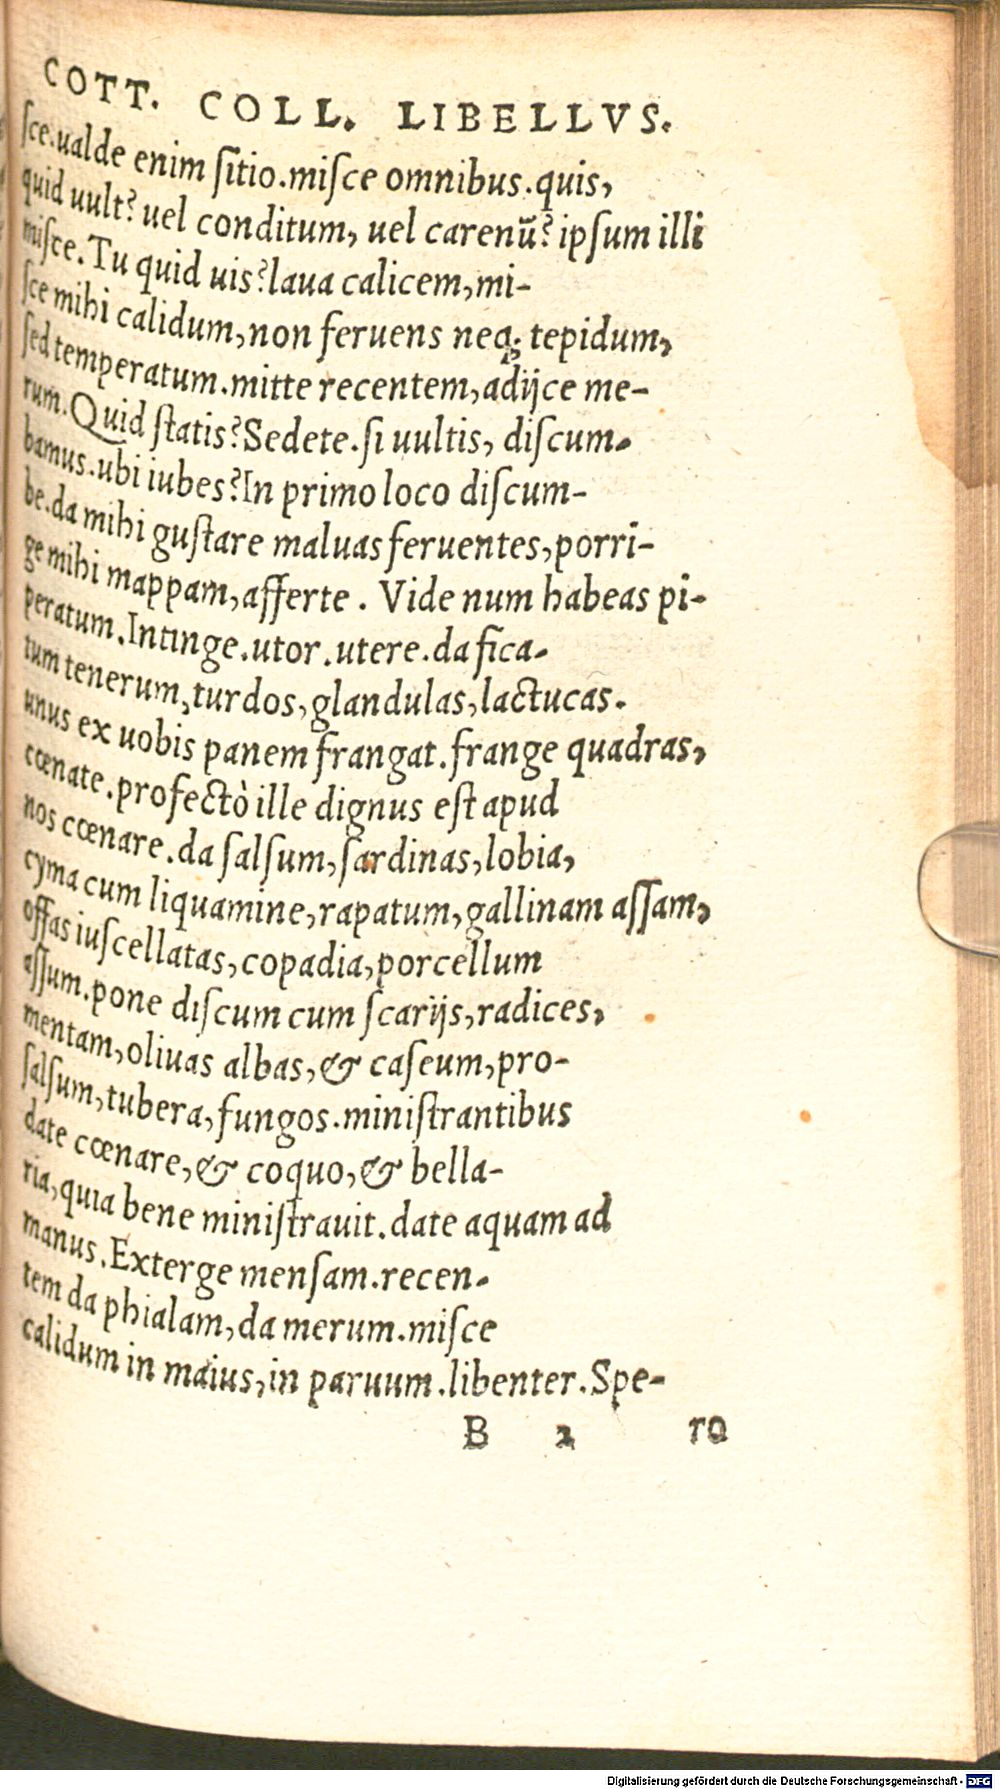 COTT. COLL. LIBELLVS.
ſce.ualde enim ſitio.miſce omnibus.quis,
quid uult? uel conditum, uel carenū? ipſum illi
miſce. Tu quid uis? laua calicem, mi-
ſce mihi calidum, non feruens neq; tepidum,
ſed temperatum. mitte recentem, adijce me-
rum. Quid ſtatis? Sedete. ſi uultis, diſcum-
bamus. ubi iubes? In primo loco diſcum-
be. da mihi guſtare maluas feruentes, porri-
ge mihi mappam, afferte. Vide num habeas pi-
peratum. Intinge. utor. utere. da fica-
tum tenerum, turdos, glandulas, lactucas.
unus ex uobis panem frangat. frange quadras,
cœnate. profectò ille dignus eſt apud
nos cœnare. da ſalſum, ſardinas, lobia,
cyma cum liquamine, rapatum, gallinam aſſam,
offas iuſcellatas, copadia, porcellum
aſſum. pone diſcum cum ſcarijs, radices,
mentam, oliuas albas, & caſeum, pro-
ſalſum, tubera, fungos. miniſtrantibus
date cœnare, & coquo, & bella-
ria, quia bene miniſtrauit. date aquam ad
manus. Exterge menſam. recen-
tem da phialam, da merum. miſce
calidum in maius, in paruum. libenter. Spe-
B 2 ro
Digitalisierung gefördert durch die Deutsche Forschungsgemeinschaft - DFG